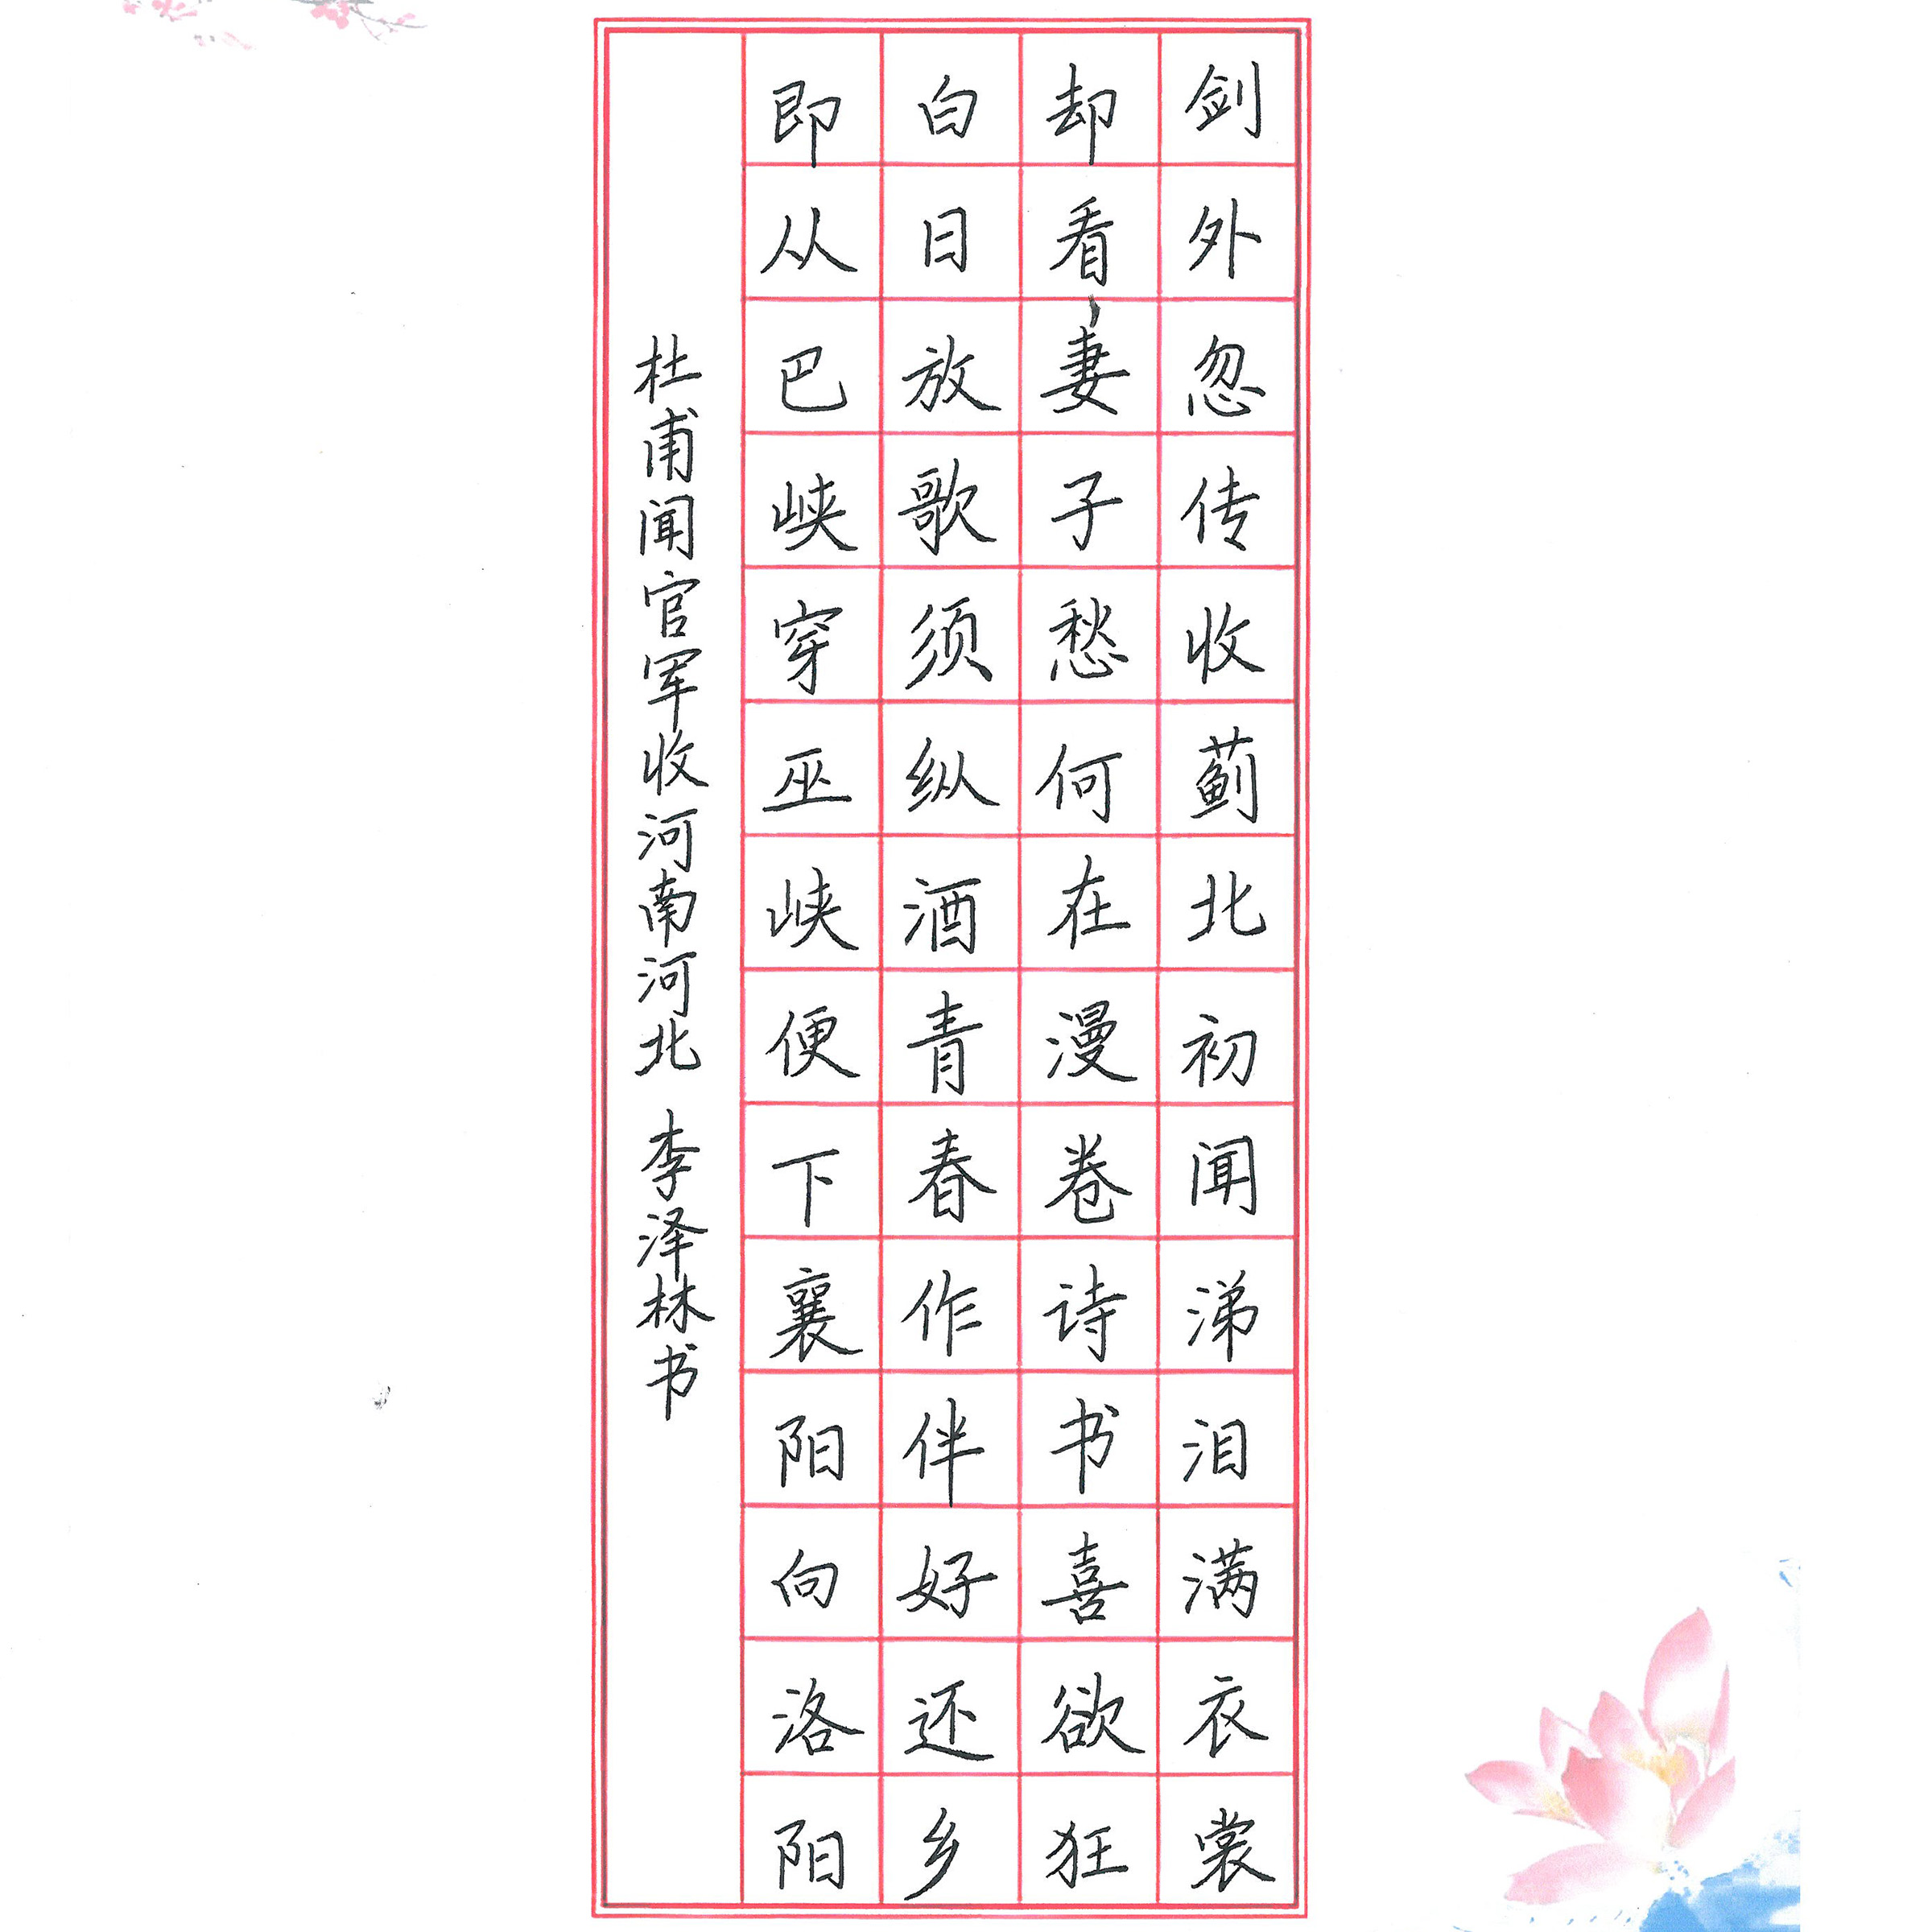 剑外忽传收蓟北初闻涕泪满衣裳
却看妻子愁何在漫卷诗书喜欲狂
白日放歌须纵酒青春作伴好还乡
即从巴峡穿巫峡便下襄阳向洛阳
杜甫闻官军收河南河北 李泽林书